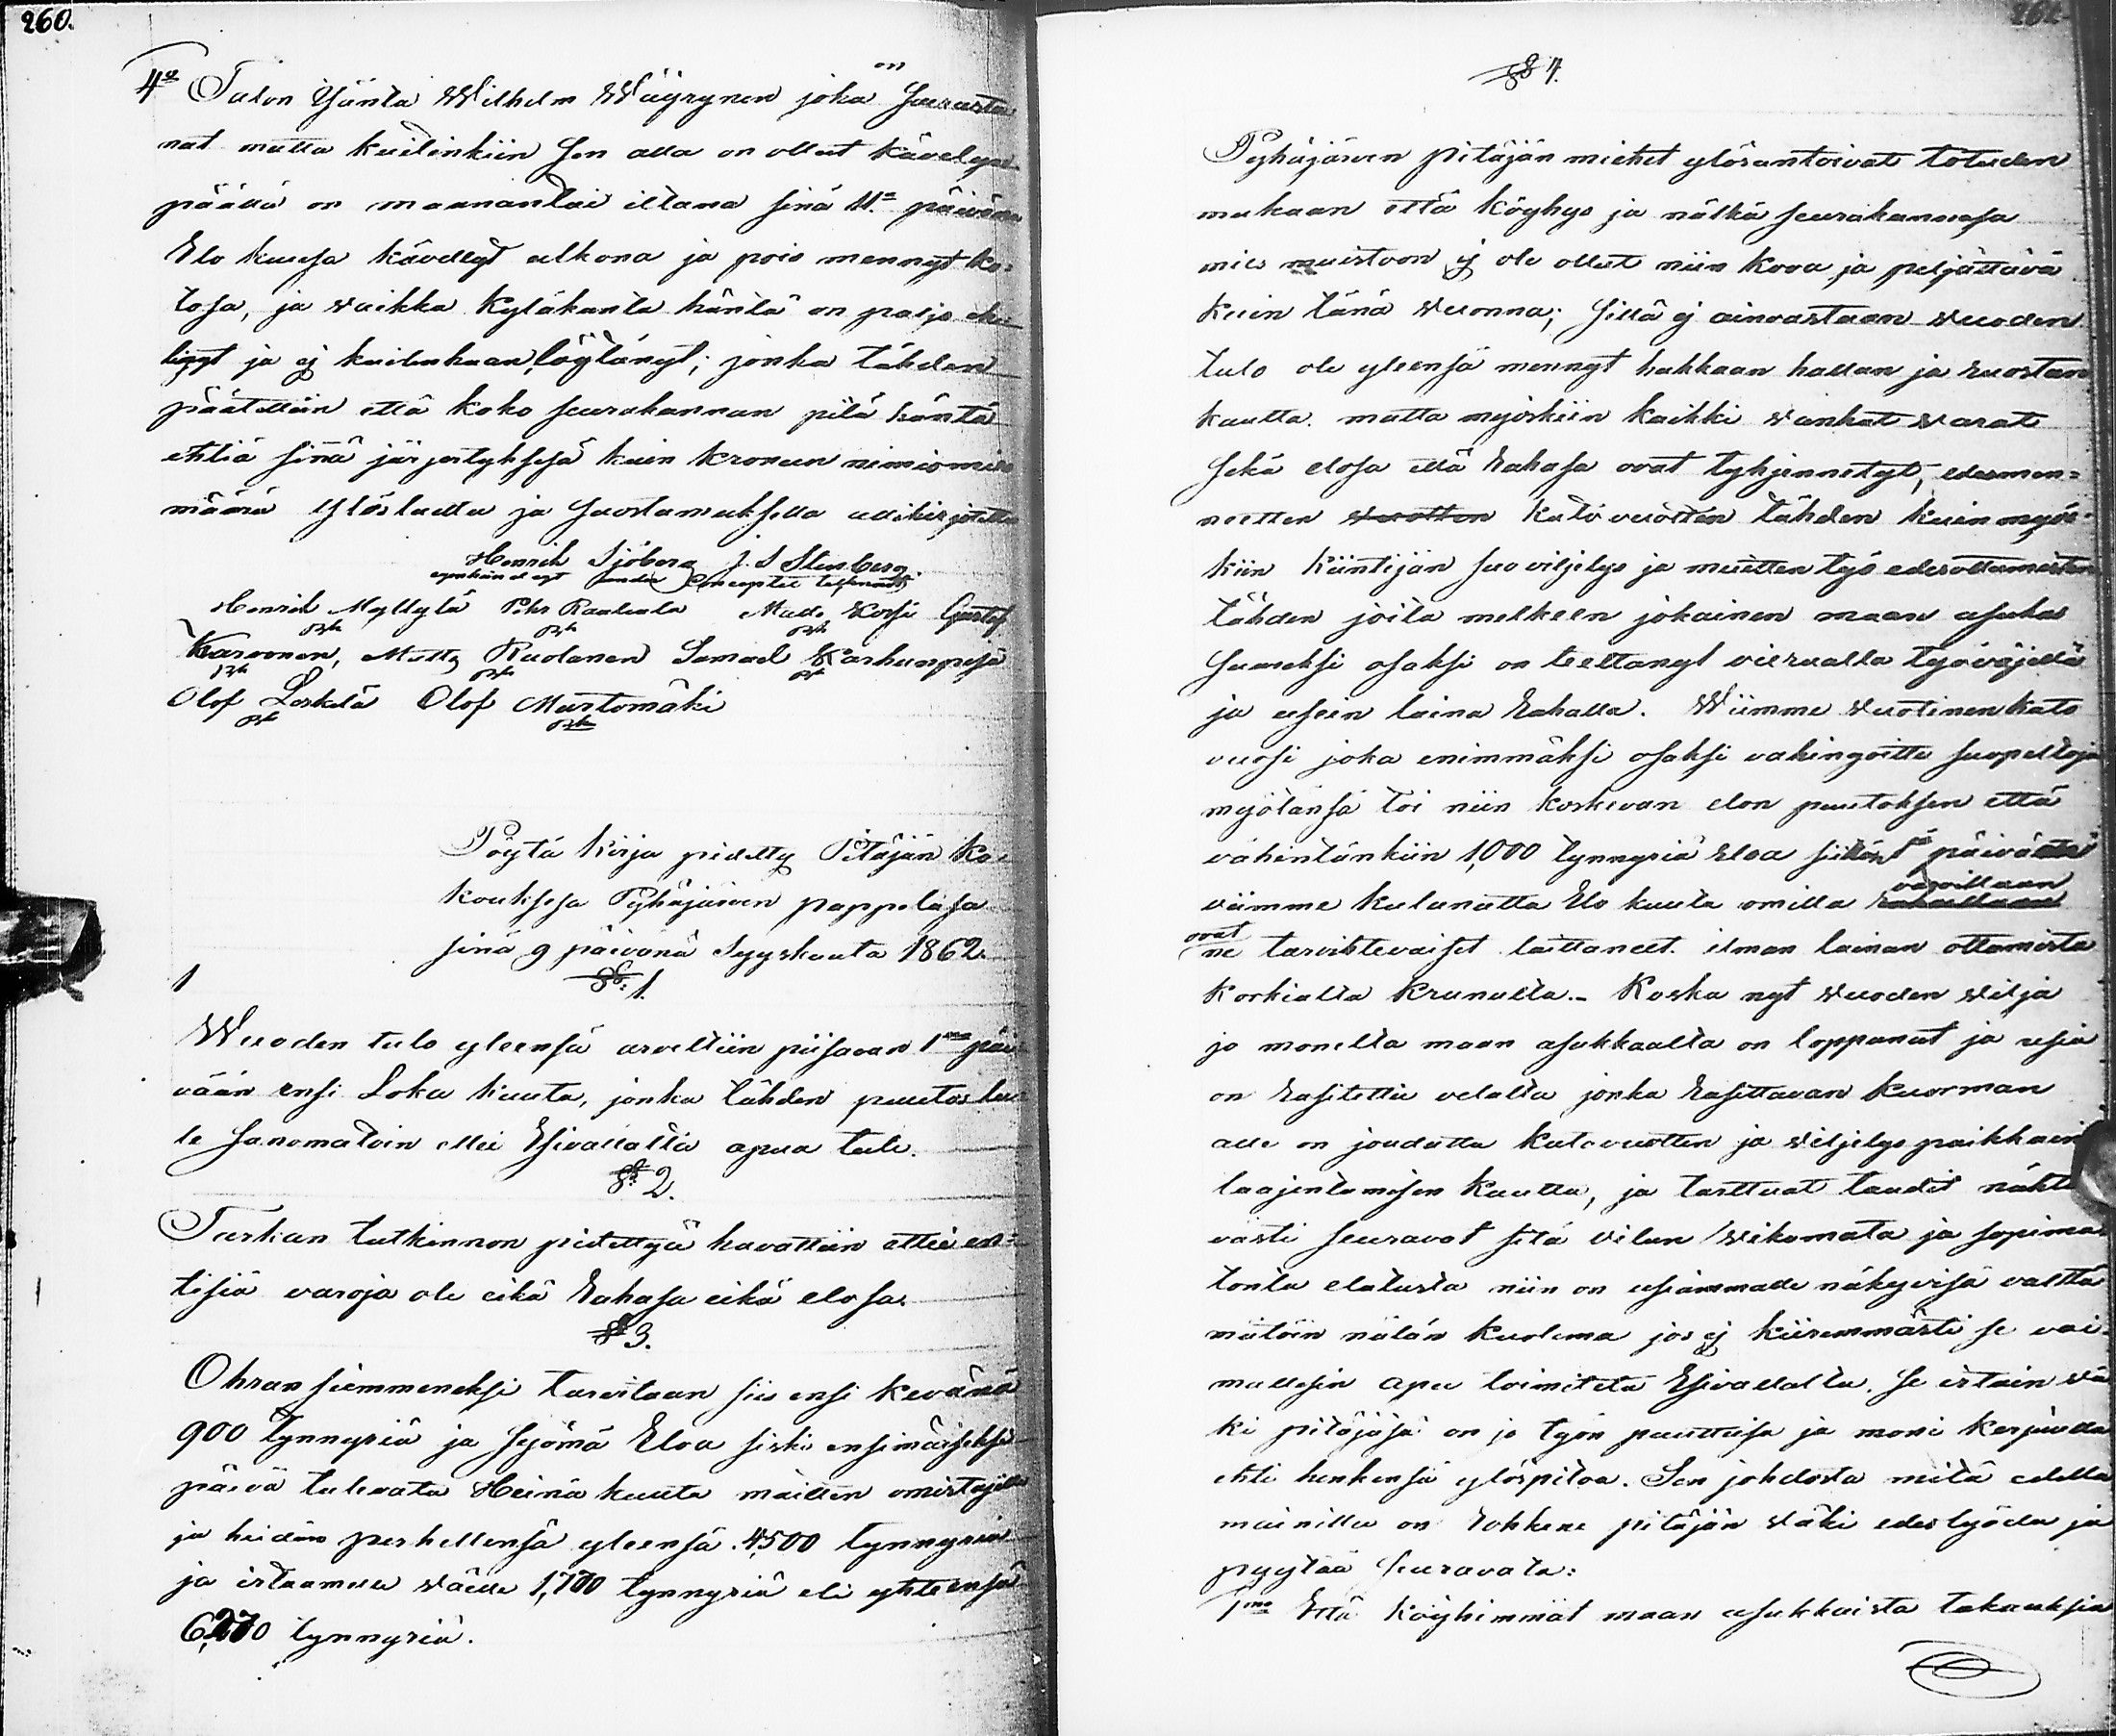 260.
on
4o Talon Isäntä Wilhelm Wäyrynen joka Sairasta
nut mutta kuitinkiin Sen alla on ollut kävelyn
päällä on maanantai iltana sinä 11ta päivänä
Elo kuusa kävellyt ulkona ja pois mennyt ko-
tosa, ja vaikka kyläkunta häntä on paljo ehti
tinyt ja ej kuitenkaan löytänyt; jonka tähden
päätettiin että koko seurakunnan pitä häntä
ehtiä sinä järjestyksesä kuin kronun nimismies
määrä Ylösluettu ja suostumuksella allekirjotettu
Henrich Sjöberg J. S Stenberg
Henrich Myllylä Pehr Rautiola Matts Korpi Gustaf
Karvonen, Matts Ruotanen Samuel Karhunpesä
Olof Leskelä Olof Murtomäki
Pöytä kirja pidetty Pitäjän ko-
kouksesa Pyhäjärven pappilasa
sinä 9 päivänä Syyskuuta 1862.
1
§ 1.
Wuoden tulo yleensä arveltiin piisavan 1mä päi
vään ensi Loka kuuta, jonka tähden puutos tu-
le sanomatoin ellei Esivallalta apua tule.
§ 2.
Tarkan tutkinnon pidettyä havattiin ettei en-
tisiä varoja ole eikä Rahasa eikä elosa.
§ 3.
Ohran siemmeneksi tarvitaan siis ensi kevänä
900 tynnyriä ja syömä Eloa siski ensimäiseksi
päivä tulevata Heinä kuuta maitten omistajille
ja heidän perhellensä yleensä 4,500 tynnyriä
ja irtaamelle väelle 1,770 tynnyriä eli yhteensä
6,270 tynnyriä.
§ 4.
Pyhäjärven pitäjän miehet ylösantoivat totuden
mukaan että köyhys ja nälkä seurakunnasa
mies muistoon ej ole ollut niin kova ja peljättävä
kuin tänä vuonna; Sillä ej ainoastaan vuoden
tulo ole yleensä mennyt hukkaan hallan ja ruosteen
kautta. mutta myöskiin kaikki vanhat varat
sekä elosa että Rahasa ovat tyhjennetyt, edesmen-
neetten vuotten kato vuotten tähden kuin myös-
kiin kiintijän suo viljelys ja muitten työ edesottamisten
tähden joita melkeen jokainen maan asuka
suureksi osaksi on teettänyt vieraalla työväjellä
ja usein laina Rahalla. Wiimme vuotinen kato
vuosi joka enimmäksi osaksi vahingoitti suopeltoja
myötänsä toi niin koskevan elon puutoksen että
vähintänkiin 1,000 tynnyriä Eloa siitä 1tä päivästä
varoillaan
viimme kulunutta Elo kuuta omilla
ovat
ne tarvihtevaiset laittaneet ilman lainan ottamista
korkialta krunulta. - Koska nyt vuoden vilja
jo monelta maan asukkaalta on loppunut ja usia
on Rasitettu velalta jonka Rasittavan kuorman
alle on jouduttu katovuotten ja viljelys paikkain
laajentamisen kautta, ja tarttuat taudit nähtä
västi seuravat sitä vilun vikomata ja sopima
tonta elatusta niin on usiammalle näkyvisä välttä
mätöin nälän kuolema jos ej kiiremmästi se voi-
mallisin apu toimiteta Esivallalta. Se irtain vä
ki pitäjäsä on jo työn puuttesa ja moni kerjuulla
ehti henkensä ylöspitoa. Sen johdosta mitä edellä
mainittu on Rohkene pitäjän väki edeslyödä ja
pyytää seuravata:
1mo Että köyhimmät maan asukkaista takauksia